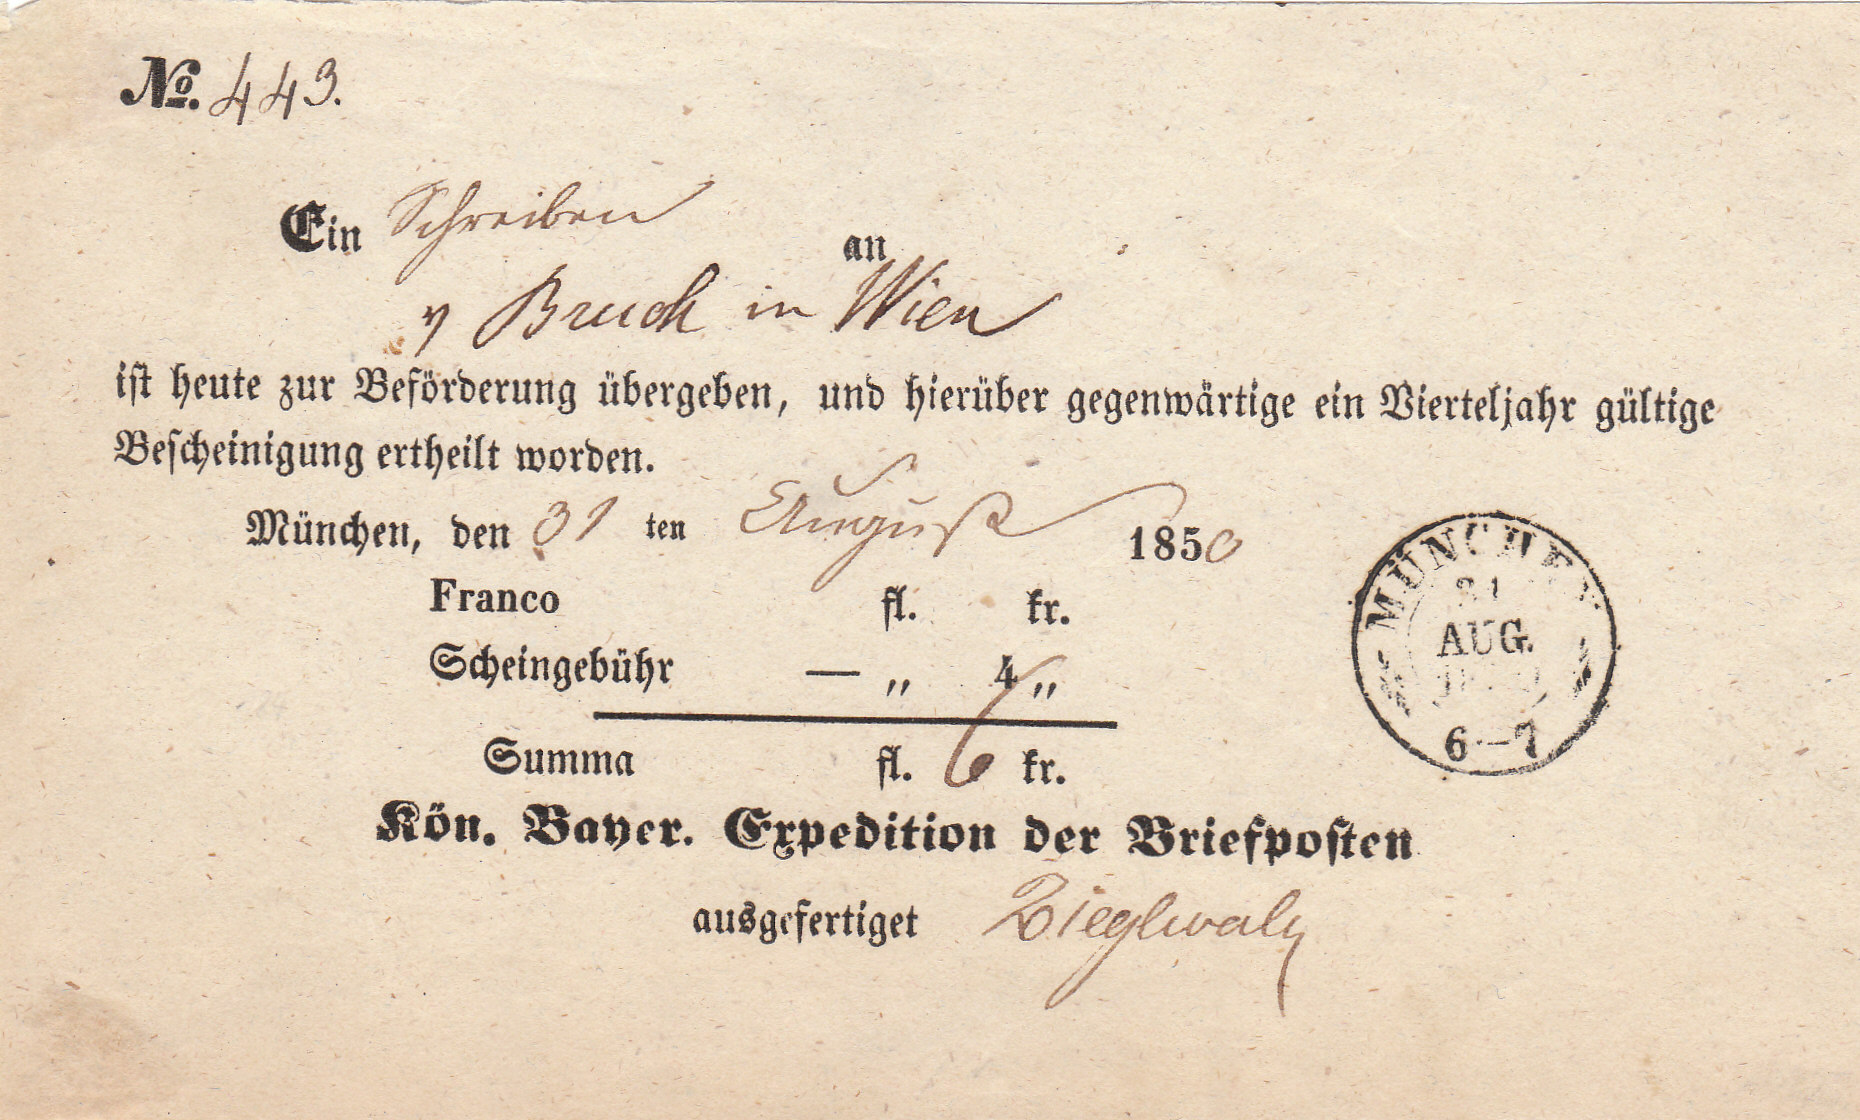 No. 443.
Ein Schreiben an
v Bruck in Wien
ist heute zur Beförderung übergeben, und hierüber gegenwärtige ein Vierteljahr gültige
Bescheinigung ertheilt worden.
München, den 31 ten August 1850
Franco fl. kr.
Scheingebühr — „ 4 „
Summa fl. 6 kr.
Kön. Bayer. Expedition der Briefposten
ausgefertiget
MÜNCHEN
31
AUG.
6—7